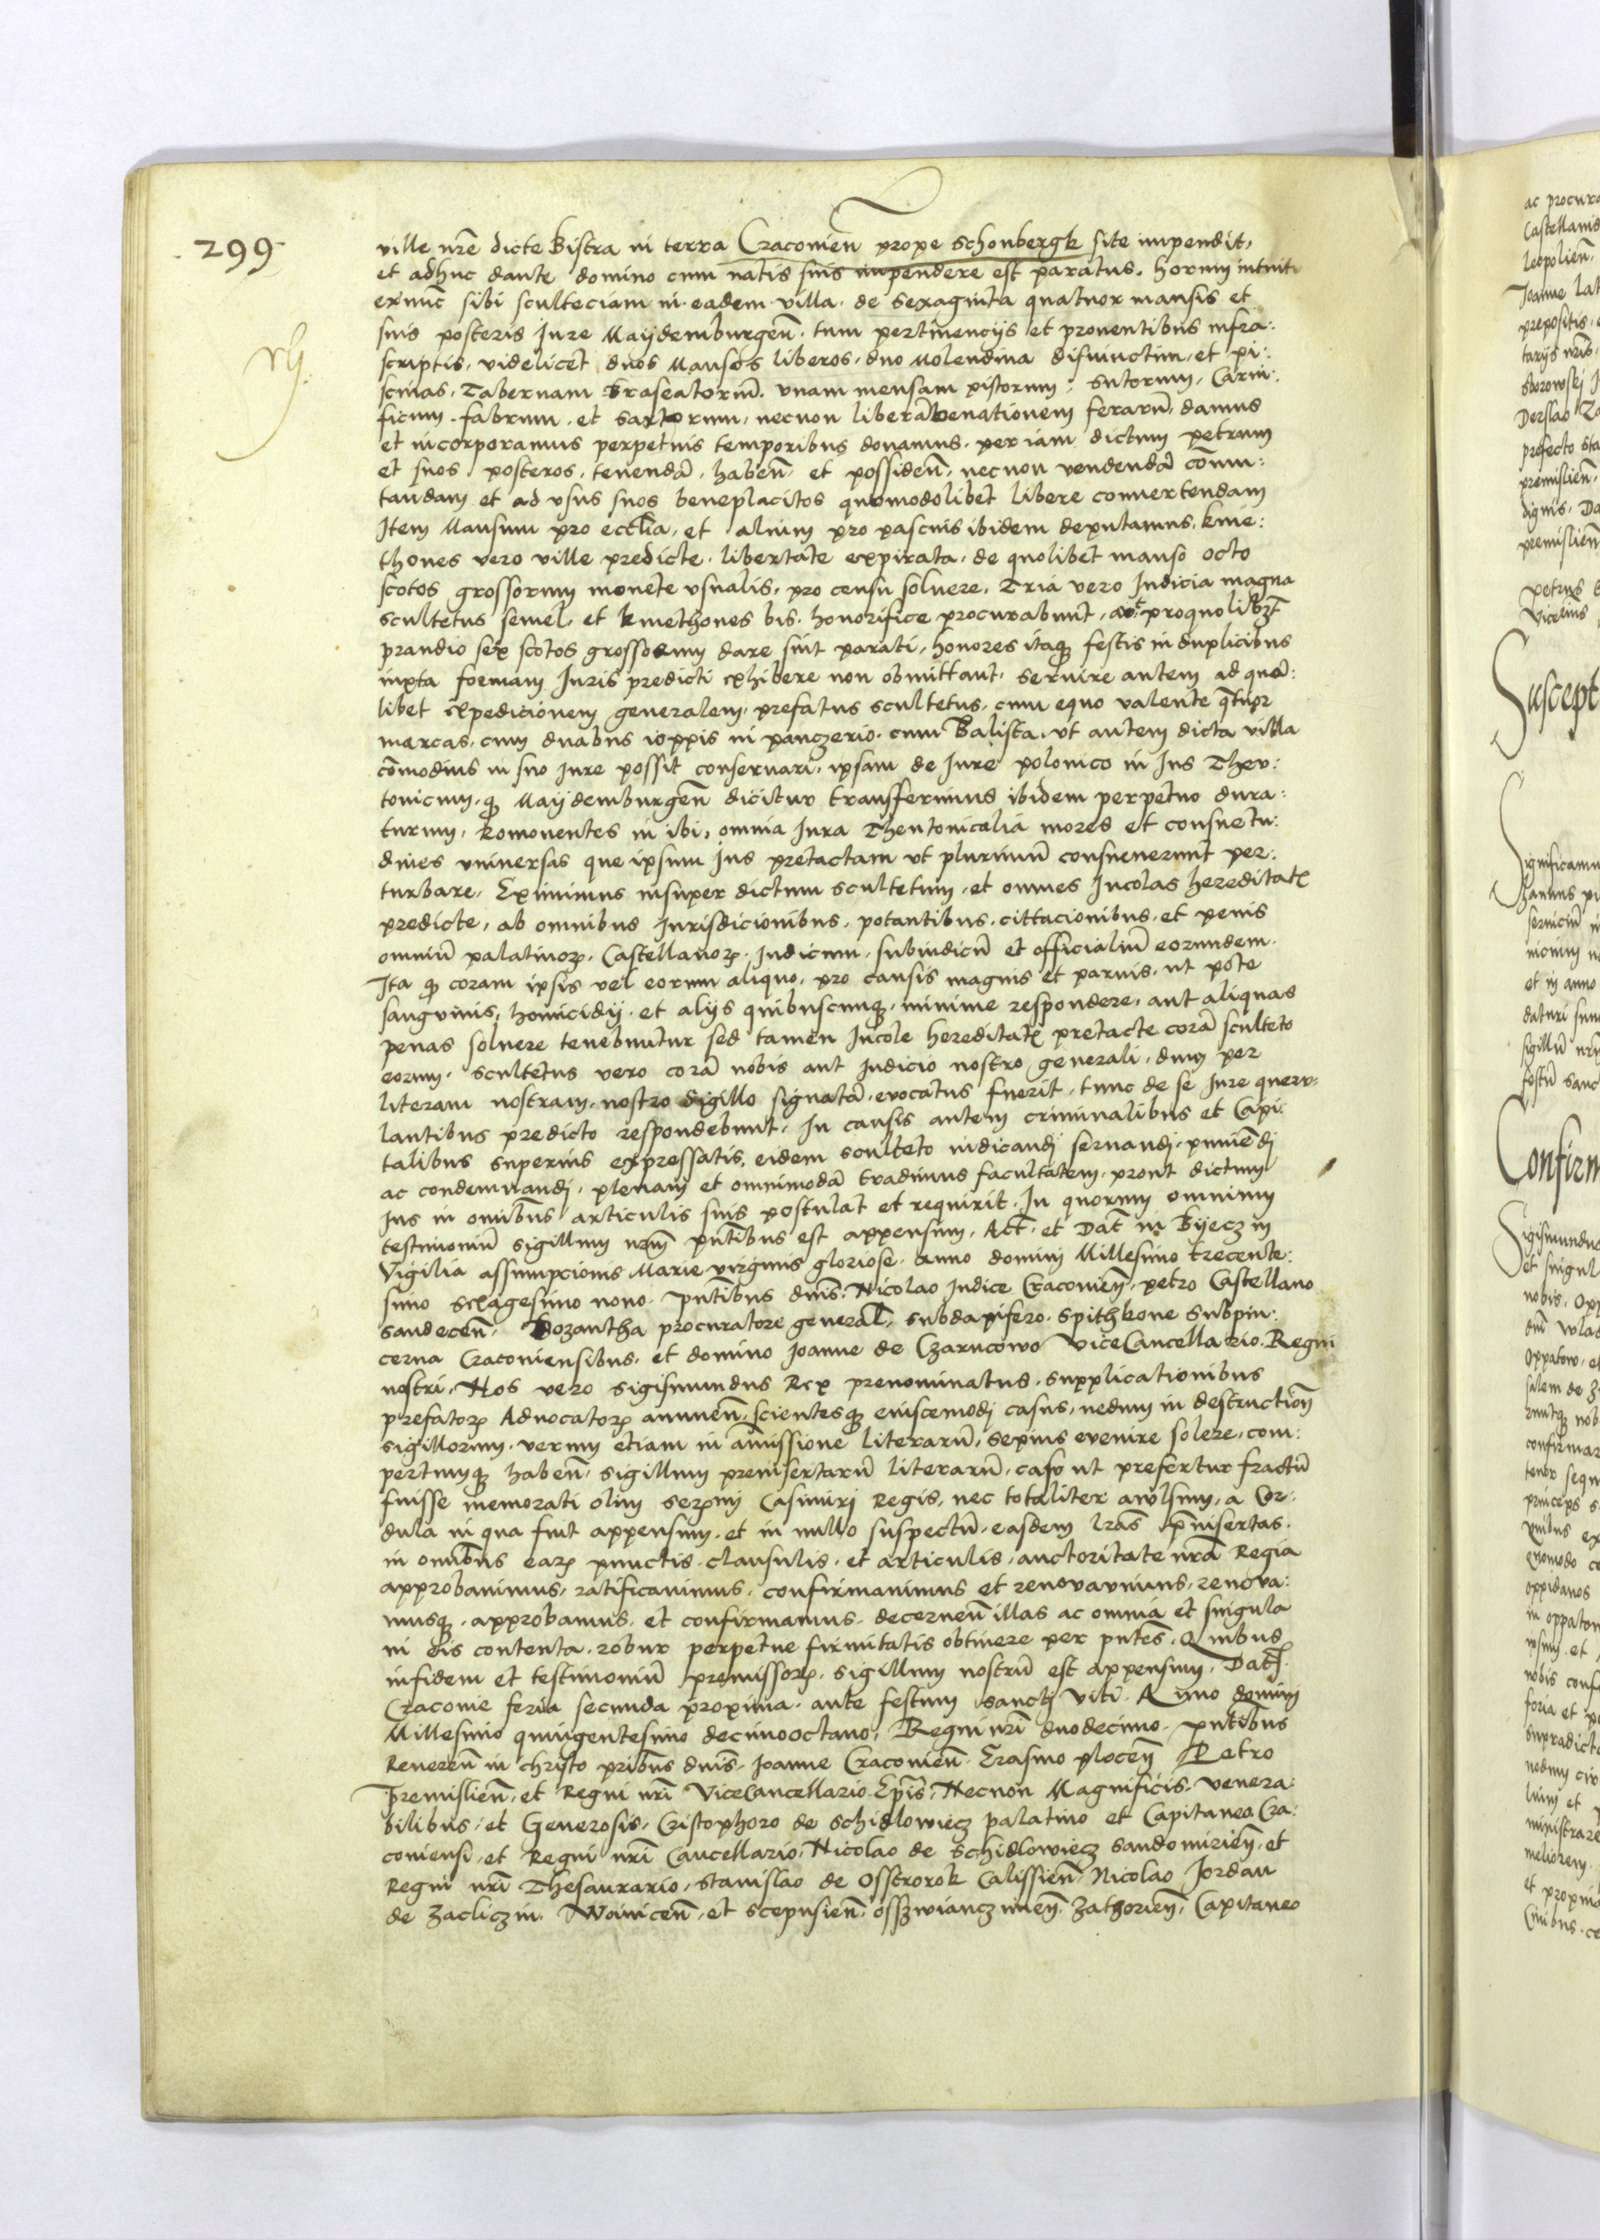 299
ville nr̃e dicte Bistra in terra Cracovieñ prope Schonbergk site inpendit,
et adhuc dante domino cum natis suis inpendere est paratus. horum intuitu
exnunc sibi sculteciam in eadem villa de sexaginta quatuor mansis et
suis posteris Jure Maijdemburgeñ. tum pertinencijs et proventibus infra:
scriptis, videlicet duos Mansos liberos, duo Molendina disiunctim, et pi:
scinas, Tabernam braseatoriũ. unam mensam pistorum: sutorum, Carni:
ficum. fabrum, et sartorum, necnon liberã venationem ferarũ, damus
et incorporamus perpetuis temporibus donamus, per iam dictum petrum
et suos posteros, tenendã, habeñ. et possideñ. necnon vendendã cõmu:
tandam et ad usus suos beneplacitos quomodolibet libere convertendam
Item Mansum pro ecclia, et alium pro pascuis ibidem deputamus, kme:
thones vero ville predicte, libertate expirata, de quolibet manso octo
scotos grossorum monete usualis, pro censu solvere. Tria vero Judicia magna
scultetus semel, et kmethones bis, honorifice procurabunt, aut proquolibet
prandio sex scotos grossorum dare sint parati, honores itaq festis in duplicibus
iuxta formam Juris predicti exhibere non obmittant, servire autem ad quã:
libet expedicionem generalem, prefatus scultetus, cum equo valente q̃tuor
marcas, cum duabus ioppis in panczerio, cum Balista, ut autem dicta villa
cõmodius in suo Jure possit conservari, ipsam de Jure polonico in Jus Theu:
tonicum, q Maijdemburgeñ dicitur transferimus ibidem perpetuo dura:
turum, Removentes in ibi, omnia Jura Theutonicalia mores et consuetu:
dines universas que ipsum Jus pretactam ut plurimũ consueverunt per:
turbare, Eximimus insuper dictum scultetum, et omnes Incolas hereditat
predicte, ab omnibus Jurisdicionibus, potantibus, cittacionibus, et penis
omniũ palatinor. Castellanor. Judicum, subiudicũ et officialiũ eorundem.
Ita q coram ipsis vel eorum aliquo, pro causis magnis et parvis, ut pote
sangvinis, homicidij, et alijs quibuscumq, minime respondere, aut aliquas
penas solvere tenebuntur sed tamen Incole hereditat pretacte corã sculteto
eorum. scultetus vero corã nobis aut Judicio nostro generali, dum per
literam nostram, nostro sigillo signatã, evocatus fuerit, tunc de se Jure queru-
lantibus predicto respondebunt. In causis autem criminalibus et Capi:
talibus superius expressatis, eidem sculteto iudicandj servandj, puniẽdj
ac condemnandj, plenam et omnimodã tradimus facultatem, prout dictum
Jus in omĩbus articulis suis postulat et requirit. In quorum omnium
testimoniũ sigillum nr̃m pñtibus est appensum, Act̃. et Dat̃ in Bijecz in
Vigilia assumpcionis Marie virginis gloriose. anno domini Millesimo trecente:
simo sexagesimo nono. pñtibus dñis. Nicolao Judice Cracovieñ. petro Castellano
Sandeceñ. Bozantha procuratore general. subdapifero. Spithkone Subpin:
cerna Cracoviensibus. et domino Joanne de Czarncowo ViceCancellario. Regni
nostri. Nos vero Sigismundus Rex prenominatus. supplicationibus
prefator. Advocator annueñ. scientesq huiuscemodj casus, nedum in destructioñ
sigillorum, verum etiam in ãmissione literarũ, sepius evenire solere, com:
pertumq habeñ. sigillum preinsertarũ literarũ, casu ut prefertur fractũ
fuisse memorati olim Ser.mi Casimiri Regis, nec totaliter avulsum, a Cor:
dula in qua fuit appensum, et in nullo suspectũ, easdem lr̃as p̃insertas.
in omĩbus ear punctis clausulis, et articulis, auctoritate nr̃a Regia
approbavimus, ratificavimus, confirmavimus et renovavimus, renova:
musq, approbamus, et confirmamus, decerneñ illas ac omnia et singula
in eis contenta, robur perpetue firmitatis obtinere per pñtes. Quibus
infidem et testimoniũ premissor. sigillum nostrũ est appensum. Dat
Cracovie feria secunda proxima ante festum Sanctj Viti. Anno dominj
Millesimo quingentesimo decimooctavo, Regni nr̃i duodecimo. pñtibus
Revereñ in christo pr̃ibus dñis, Joanne Cracovieñ. Erasmo ploceñ Petro
Premislieñ. et Regni nr̃i ViceCancellario Ep̃is, Necnon Magnificis, venera:
bilibus, et Generosis, Cristophoro de Schidlowiecz palatino et Capitaneo Cra:
coviensi, et Regni nr̃i Cancellario, Nicolao de Schidlowiecz Sandomirieñ, et
Regni nr̃i Thesaurario, Stanislao de Osstrorok Calissieñ. Nicolao Jordan
de Zacliczin. Woiniceñ, et Scepusieñ. Osszwianczimeñ. Zathorieñ, Capitaneo